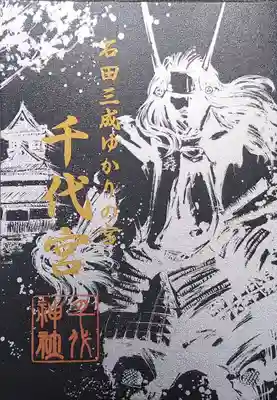 石田三成ゆかりの宮
千代宮
千代
神社